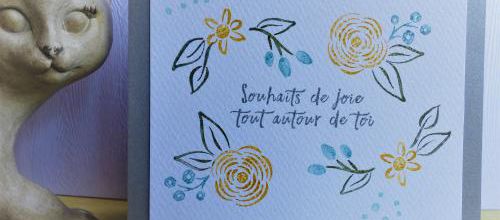 Souhaits de joie
tout autour de toi